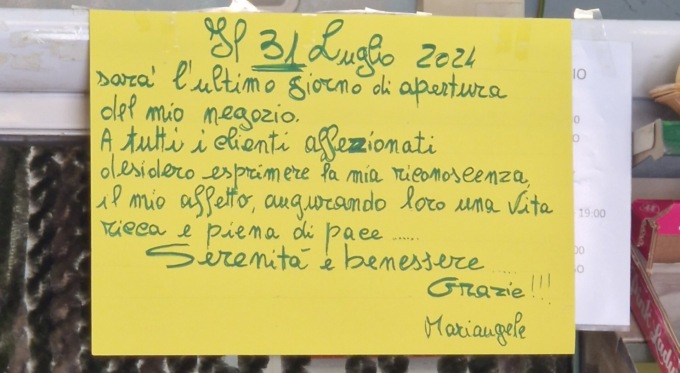 Il 31 Luglio 2024
sarà l'ultimo giorno di apertura
del mio negozio.
A tutti i clienti affezionati
desidero esprimere la mia riconoscenza,
il mio affetto, augurando loro una vita
ricca e piena di pace .....
Serenità e benessere .....
Grazie!!!
Mariangela
19:00